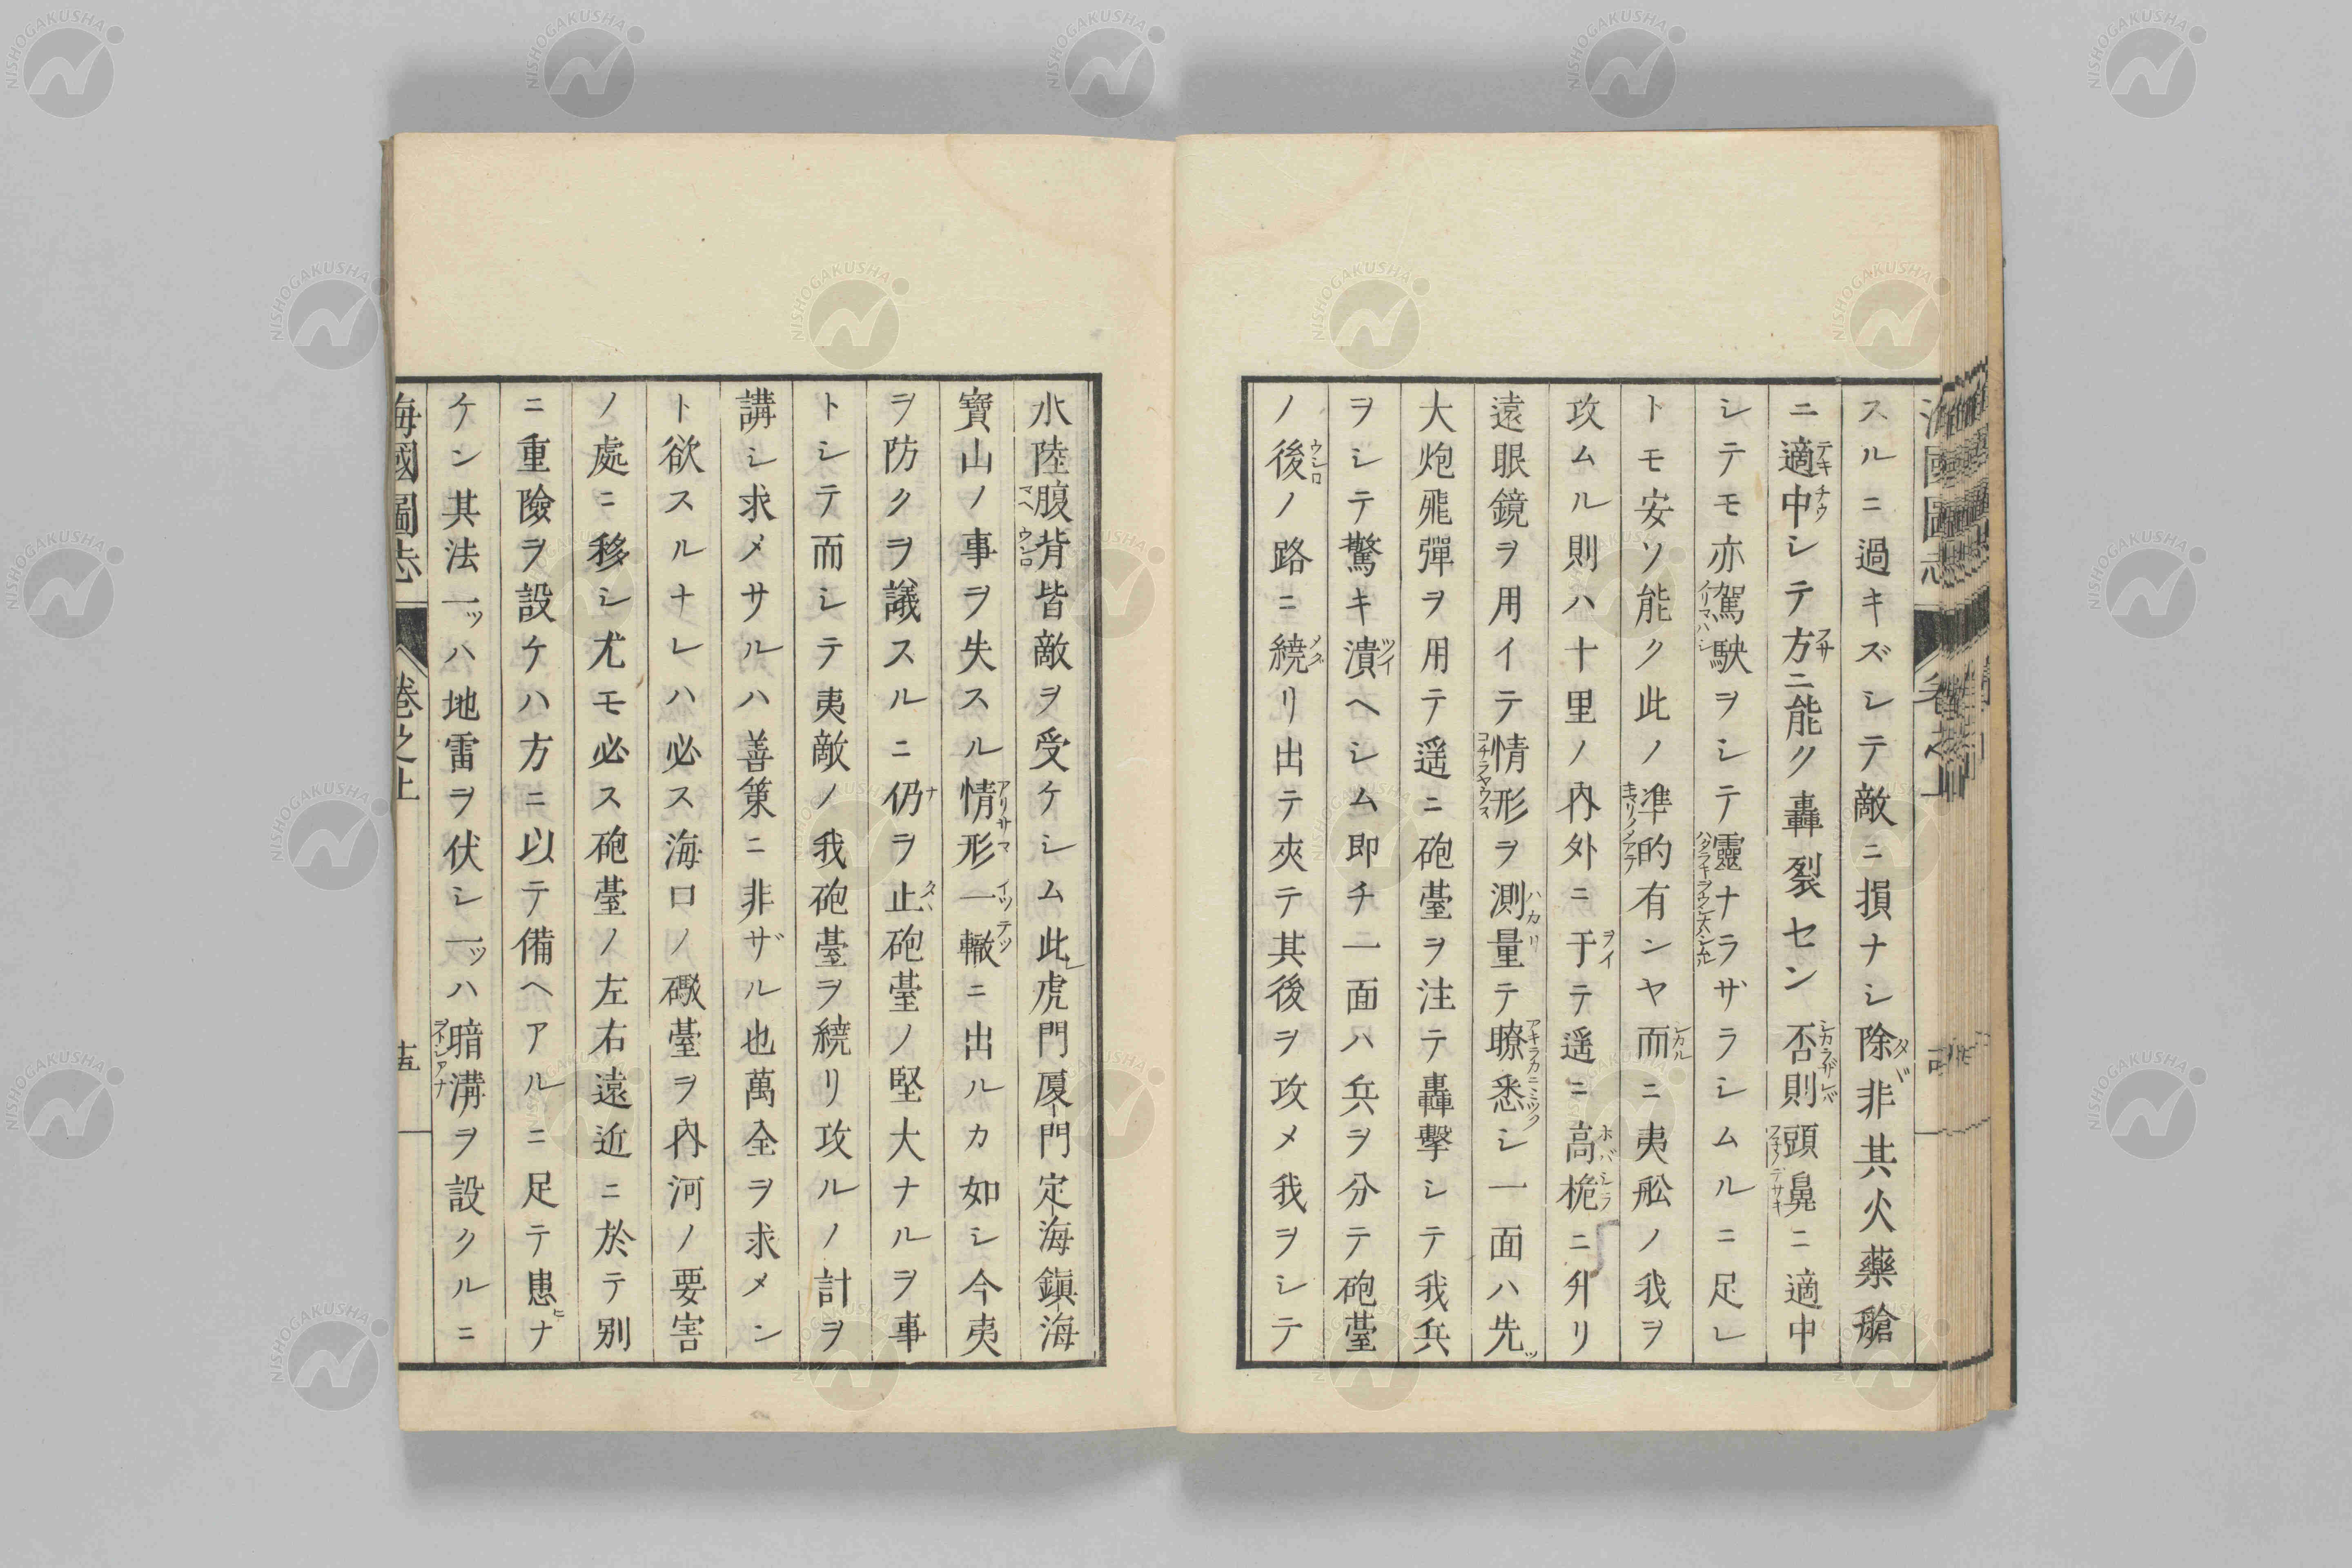 スルニ過キズシテ敵ニ損ナシ除非其火藥艙
ニ適中シテ方ニ能ク轟裂セン否則頭鼻ニ適中
シテモ亦駕駛ヲシテ靈ナラザラシムルニ足レ
トモ安ソ能ク此ノ準的有ンヤ而ニ夷舩ノ我ヲ
攻ムル則ハ十里ノ內外ニ于テ遥ニ高桅ニ升リ
遠眼鏡ヲ用イテ情形ヲ測量テ瞭悉シ一面ハ先
大炮飛彈ヲ用テ遥ニ砲臺ヲ注テ轟擊シテ我兵
ヲシテ驚キ潰ヘシム即チ一面ハ兵ヲ分テ砲臺
ノ後ノ路ニ繞リ出テ夾テ其後ヲ攻メ我ヲシテ
水陸腹背皆敵ヲ受ケシム此虎門厦門定海鎭海
寶山ノ事ヲ失スル情形一轍ニ出ルカ如シ今夷
ヲ防クヲ議スルニ仍ヲ止砲臺ノ堅大ナルヲ事
トシテ而シテ夷敵ノ我砲臺ヲ繞リ攻ルノ計ヲ
講シ求メサルハ善策ニ非ザル也萬全ヲ求メン
ト欲スルナレハ必ス海口ノ礮臺ヲ內河ノ要害
ノ處ニ移シ尤モ必ス砲臺ノ左右遠近ニ於テ別
ニ重險ヲ設ケハ方ニ以テ備ヘアルニ足テ患ナ
ケン其法一ッハ地雷ヲ伏シ一ッハ暗溝ヲ設クルニ
海國圖志 卷之上 十五
NISHOGAKUSHA